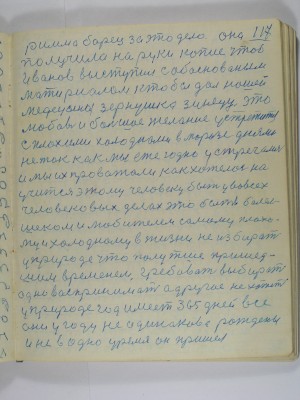 117
римма борец за это дело. она
получила на руки копие чтоб
Иванов выступил с обоснованым
материалом и чтобы дал нашей
медецины зернушка
это
любовь и большое желание устретитс
с плохими холодными в морозе днями
не ток как мы ежегодно устречаем
и мы их проважаем как хотелос на
учится этому человеку быть у во всех
человековых делах это быть боль
шеком и любителем самому плохо
му и холодному в жизни не избират
у природе что получше пришед
шем временем, требовать выбират
одно воспринимат а другое не хотеть
у природе год имеет 365 дней все
они у году не адинакова рождены
и не в одно уремя он пришел